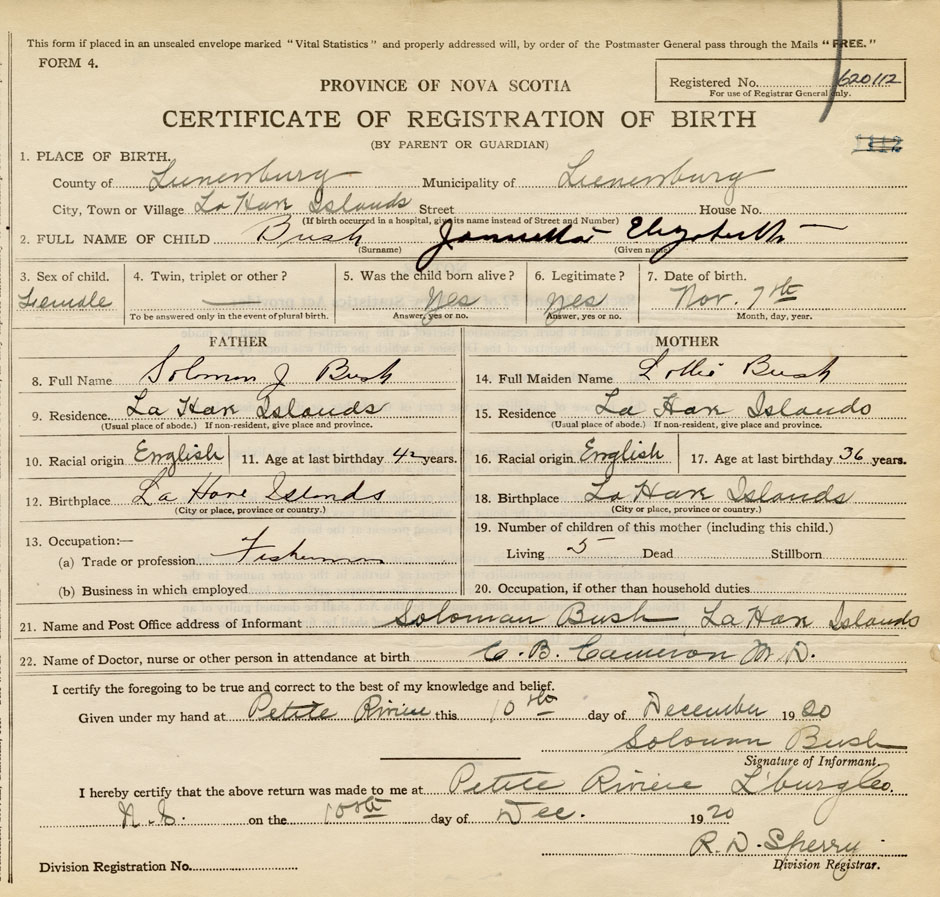 This form if placed in an unsealed envelope marked "Vital Statistics" and properly addressed will, by order of the Postmaster General pass through the Mails "FREE."
FORM 4.
Registered No. 620112
For use of Registrar General only.
PROVINCE OF NOVA SCOTIA
CERTIFICATE OF REGISTRATION OF BIRTH
(BY PARENT OR GUARDIAN)
1. PLACE OF BIRTH.
County of Lunenburg Municipality of Lunenburg
City, Town or Village La Have Islands Street House No.
(If birth occurred in a hospital, give its name instead of Street and Number)
2. FULL NAME OF CHILD Bush Elizabeth
(Surname) (Given name)
3. Sex of child. 4. Twin, triplet or other? 5. Was the child born alive? 6. Legitimate? 7. Date of birth.
Female — yes yes Nov. 7th
To be answered only in the event of plural birth. Answer, yes or no. Answer, yes or no. Month, day, year.
FATHER MOTHER
8. Full Name Solomon J Bush 14. Full Maiden Name Lottie Bush
9. Residence. La Have Islands 15. Residence La Have Islands
(Usual place of abode.) If non-resident, give place and province. (Usual place of abode.) If non-resident, give place and province.
10. Racial origin English 11. Age at last birthday 42 years. 16. Racial origin English 17. Age at last birthday 36 years.
12. Birthplace La Have Islands 18. Birthplace La Have Islands
(City or place, province or country.) (City or place, province or country.)
13. Occupation:— 19. Number of children of this mother (including this child.)
(a) Trade or profession Fisherman Living 5 Dead Stillborn
(b) Business in which employed 20. Occupation, if other than household duties
21. Name and Post Office address of Informant Soloman Bush, La Have Islands
22. Name of Doctor, nurse or other person in attendance at birth C. B. Cameron M. D.
I certify the foregoing to be true and correct to the best of my knowledge and belief.
Given under my hand at Petite Riviere this 10th day of December 1920
Soloman Bush
Signature of Informant
I hereby certify that the above return was made to me at Petite Riviere L'burg Co.
N.S. on the 10th day of Dec. 1920
R. D. Sperry
Division Registration No. Division Registrar.